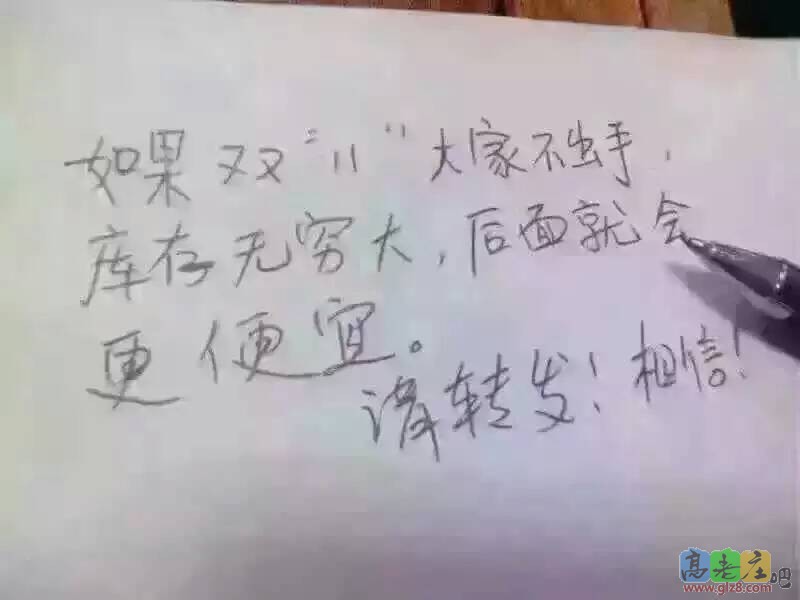 如果双"11"大家不出手,
库存无穷大,后面就会
更便宜。
请转发!相信!
高老庄吧
www.glz8.com